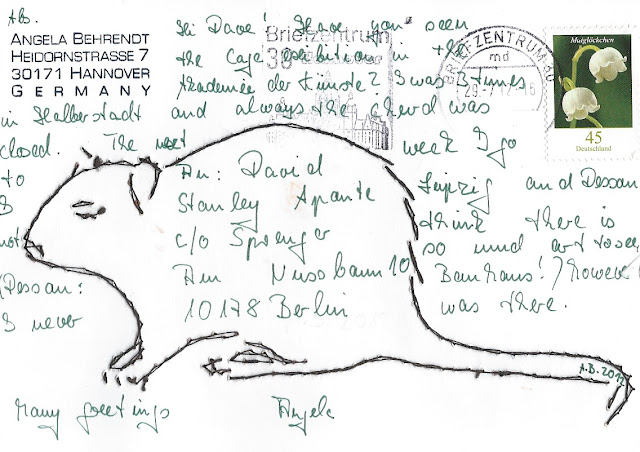 Abs.
ANGELA BEHRENDT
HEIDORNSTRASSE 7
30171 HANNOVER
GERMANY
Hi Dave! Have you seen
the Cage exhibition in the
Akademie der Künste? I was 3 times
in Halberstadt and always the church was
closed. The next week I go
to Leipzig and Dessau
I think there is
not so much art to see
(Dessau: Bauhaus!) However
I never was there.
An: David
Stanley Aponte
c/o Sprenger
Am Nussbaum 10
10178 Berlin
Many greetings Angela
A.B. 2012
Briefzentrum
30
BRIEFZENTRUM 30
md
Maiglöckchen
45
Deutschland